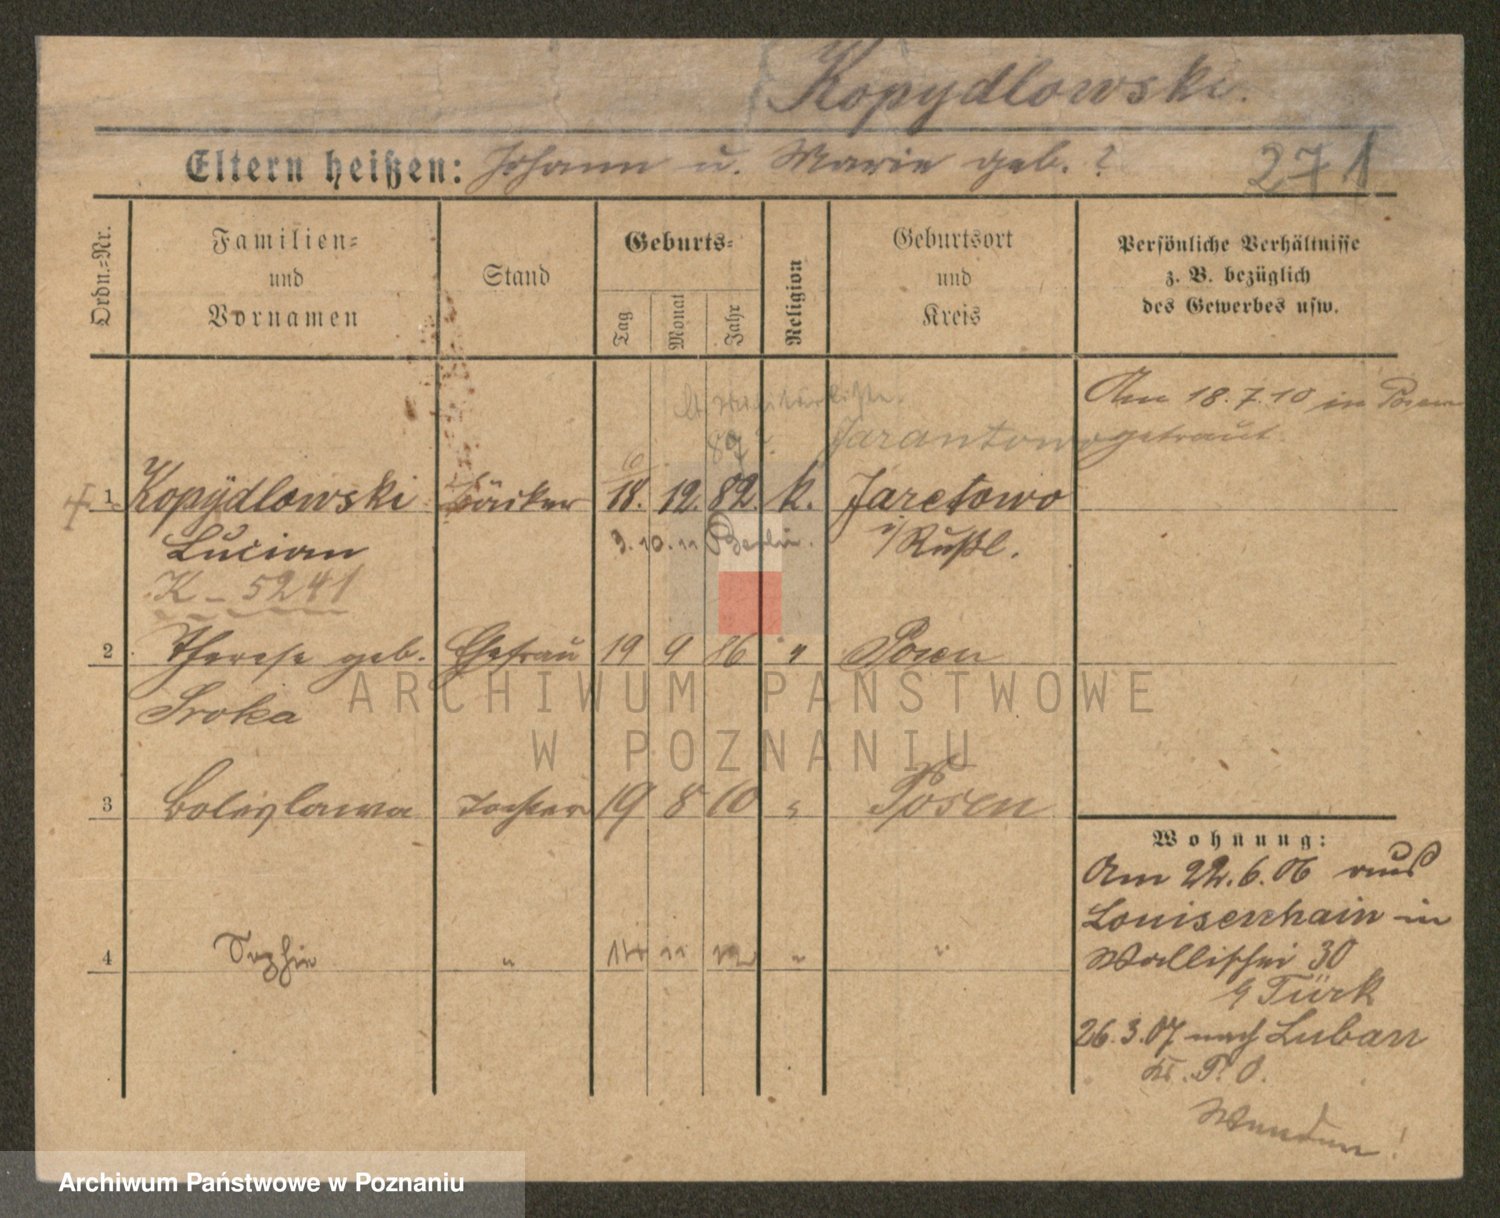 Kopydlowski.
Eltern heißen: Johann u. Marie geb. ?
271
Ordn.-Nr.
Familien-
und
Vornamen
Stand
Geburts-
Tag
Monat
Jahr
Religion
Geburtsort
und
Kreis
Persönliche Verhältnisse
z. B. bezüglich
des Gewerbes usw.
Am 18.7.10 in Posen
getraut.
87?
Jarantowo
6
1 Kopÿdlowski Bäcker 18. 12. 82. k. Jaretowo
Lucian 3.10.11 Berlin. i/Rußl.
K - 5241
2 Therese geb. Ehefrau 19 9 86 " Posen
Sroka
3 Boleslawa Tochter 19 8 10 " Posen
4 Sophie " 11 " "
Wohnung:
Am 22.6.06 aus
Louisenhain in
Wallischei 30
b Türk
26.3.07 nach Luban
Kr. P. O.
Wenden!
ARCHIWUM PAŃSTWOWE
W POZNANIU
Archiwum Państwowe w Poznaniu